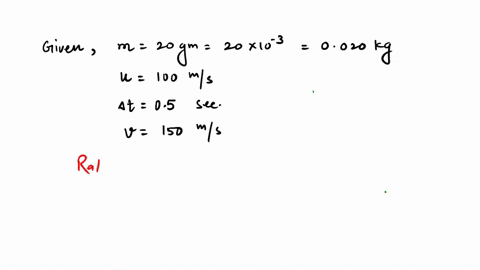 Given, m = 20 gm = 20 × 10⁻³ = 0.020 kg
u = 100 m/s
Δt = 0.5 sec.
v = 150 m/s
Rat